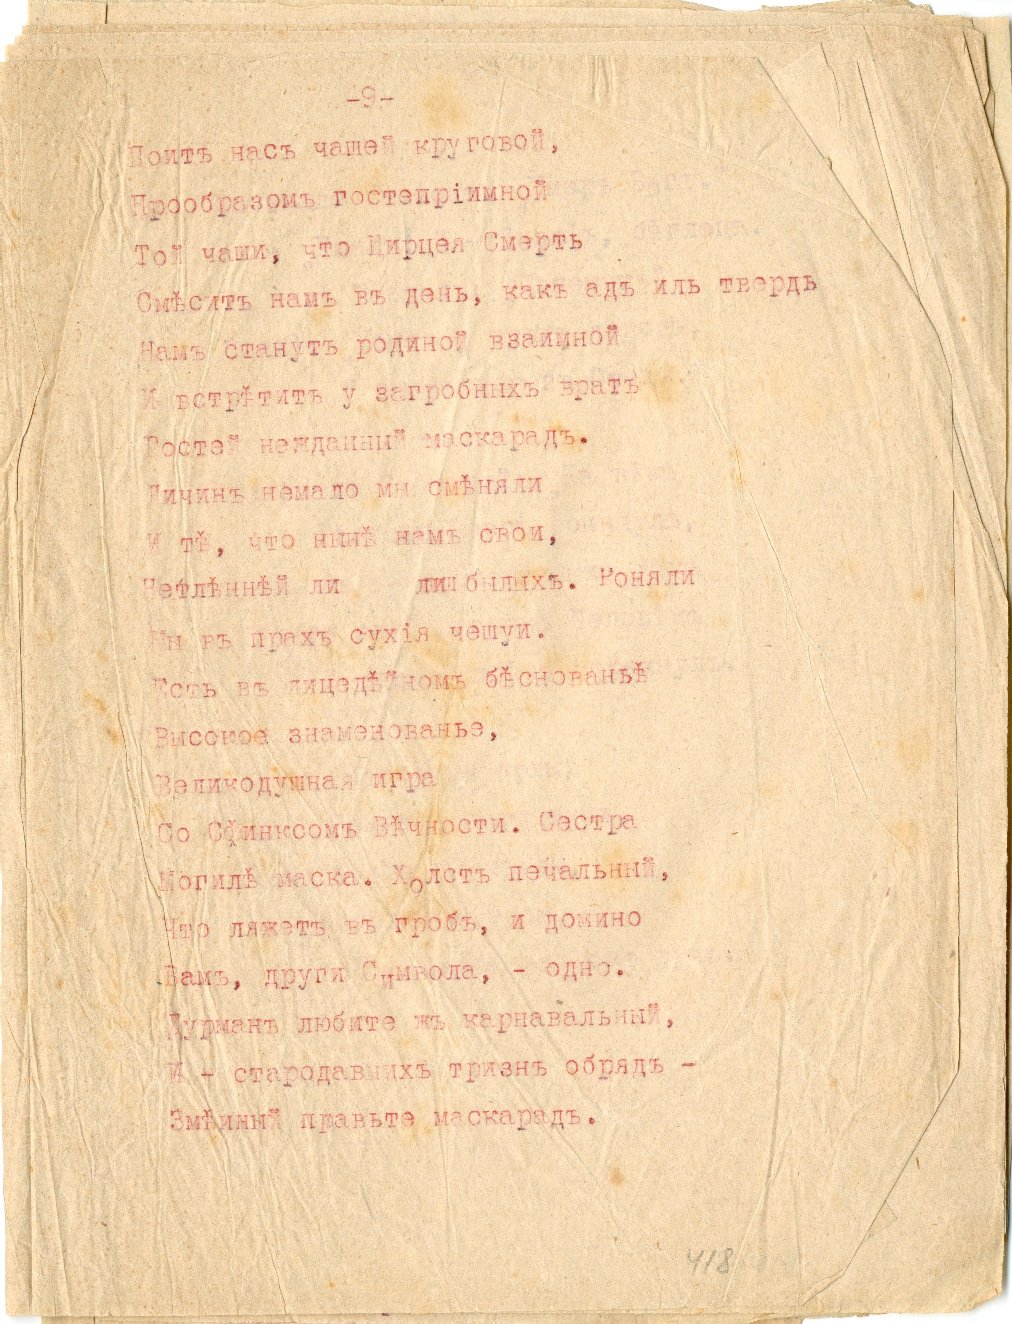 -9-
Поитъ насъ чашей круговой,
Прообразомъ гостепріимной
Той чаши, что Цирцея Смерть
Смѣситъ намъ въ день, какъ адъ иль твердь
Намъ станутъ родиной взаимной
И встрѣтитъ у загробныхъ вратъ
Гостей нежданный маскарадъ.
Личинъ немало мы смѣняли
И тѣ, что нынѣ намъ свои,
Нетлѣннѣй ли былыхъ. Роняли
Мы въ прахъ сухія чешуи.
Есть въ лицедѣйномъ бѣснованьѣ
Высокое знаменованье,
Великодушная игра
Со Сфинксомъ Вѣчности. Сестра
Могилѣ маска. Холстъ печальный,
Что ляжетъ въ гробъ, и домино
Вамъ, други Символа, - одно.
Дурманъ любите жъ карнавальный,
И - стародавнихъ тризнъ обрядъ -
Змѣиный правьте маскарадъ.
418